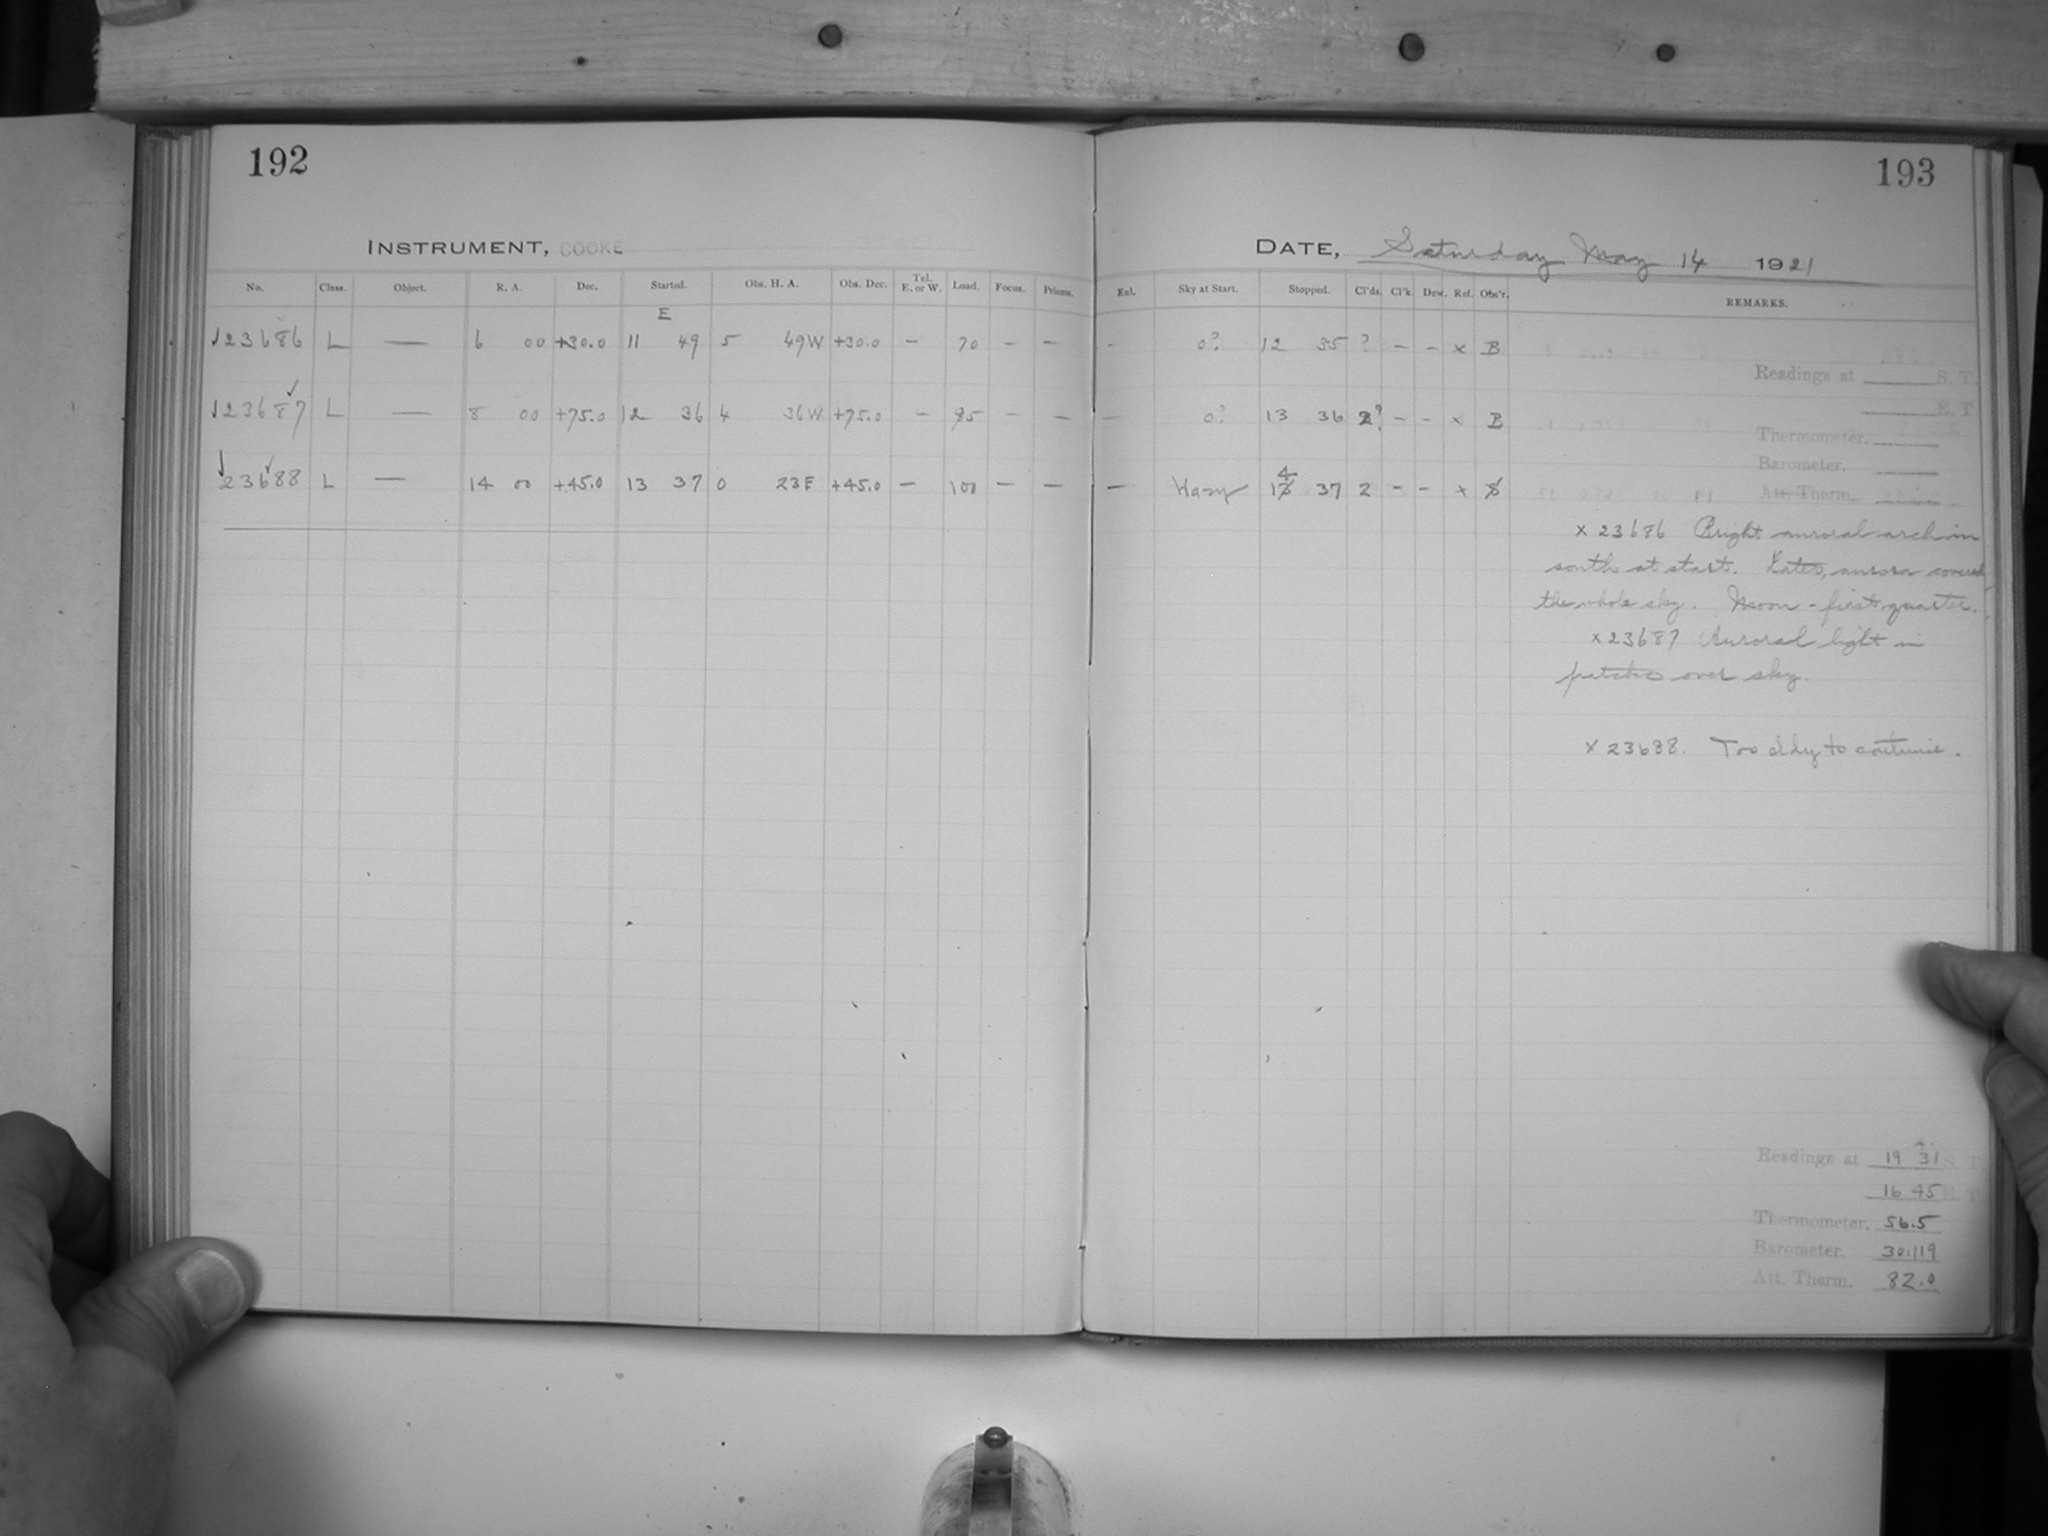 192
193
INSTRUMENT, COOKE
DATE, Saturday May 14 1921
No. Class. Object. R. A. Dec. Started. Obs. H. A. Obs. Dec. Tel. E. or W. Load. Focus. Prisms.
Enl. Sky at Start. Stopped. Cl'ds. Cl'k. Dew. Ref. Obs'r. REMARKS.
E
√23686 L — 6 00 +30.0 11 49 5 49W +30.0 — 70 — — - 0? 12 35 ? — — x B
Readings at S. T.
E. T.
√23687 L — 8 00 +75.0 12 36 4 36W +75.0 — 85 — — — 0? 13 36 2? — — x B
Thermometer.
Barometer.
√23688 L — 14 00 +45.0 13 37 0 23E +45.0 — 100 — — — Hazy 14 37 2 — — x B
Att. Therm.
x 23686 Bright auroral arch in
south at start. Later, aurora covered
the whole sky. Moon - first quarter.
x 23687 Auroral light in
patches over sky.
x 23688. Too cldy to continue.
Readings at 19 31 S. T.
16 45 E. T.
Thermometer. 56.5
Barometer. 30.119
Att. Therm. 82.0